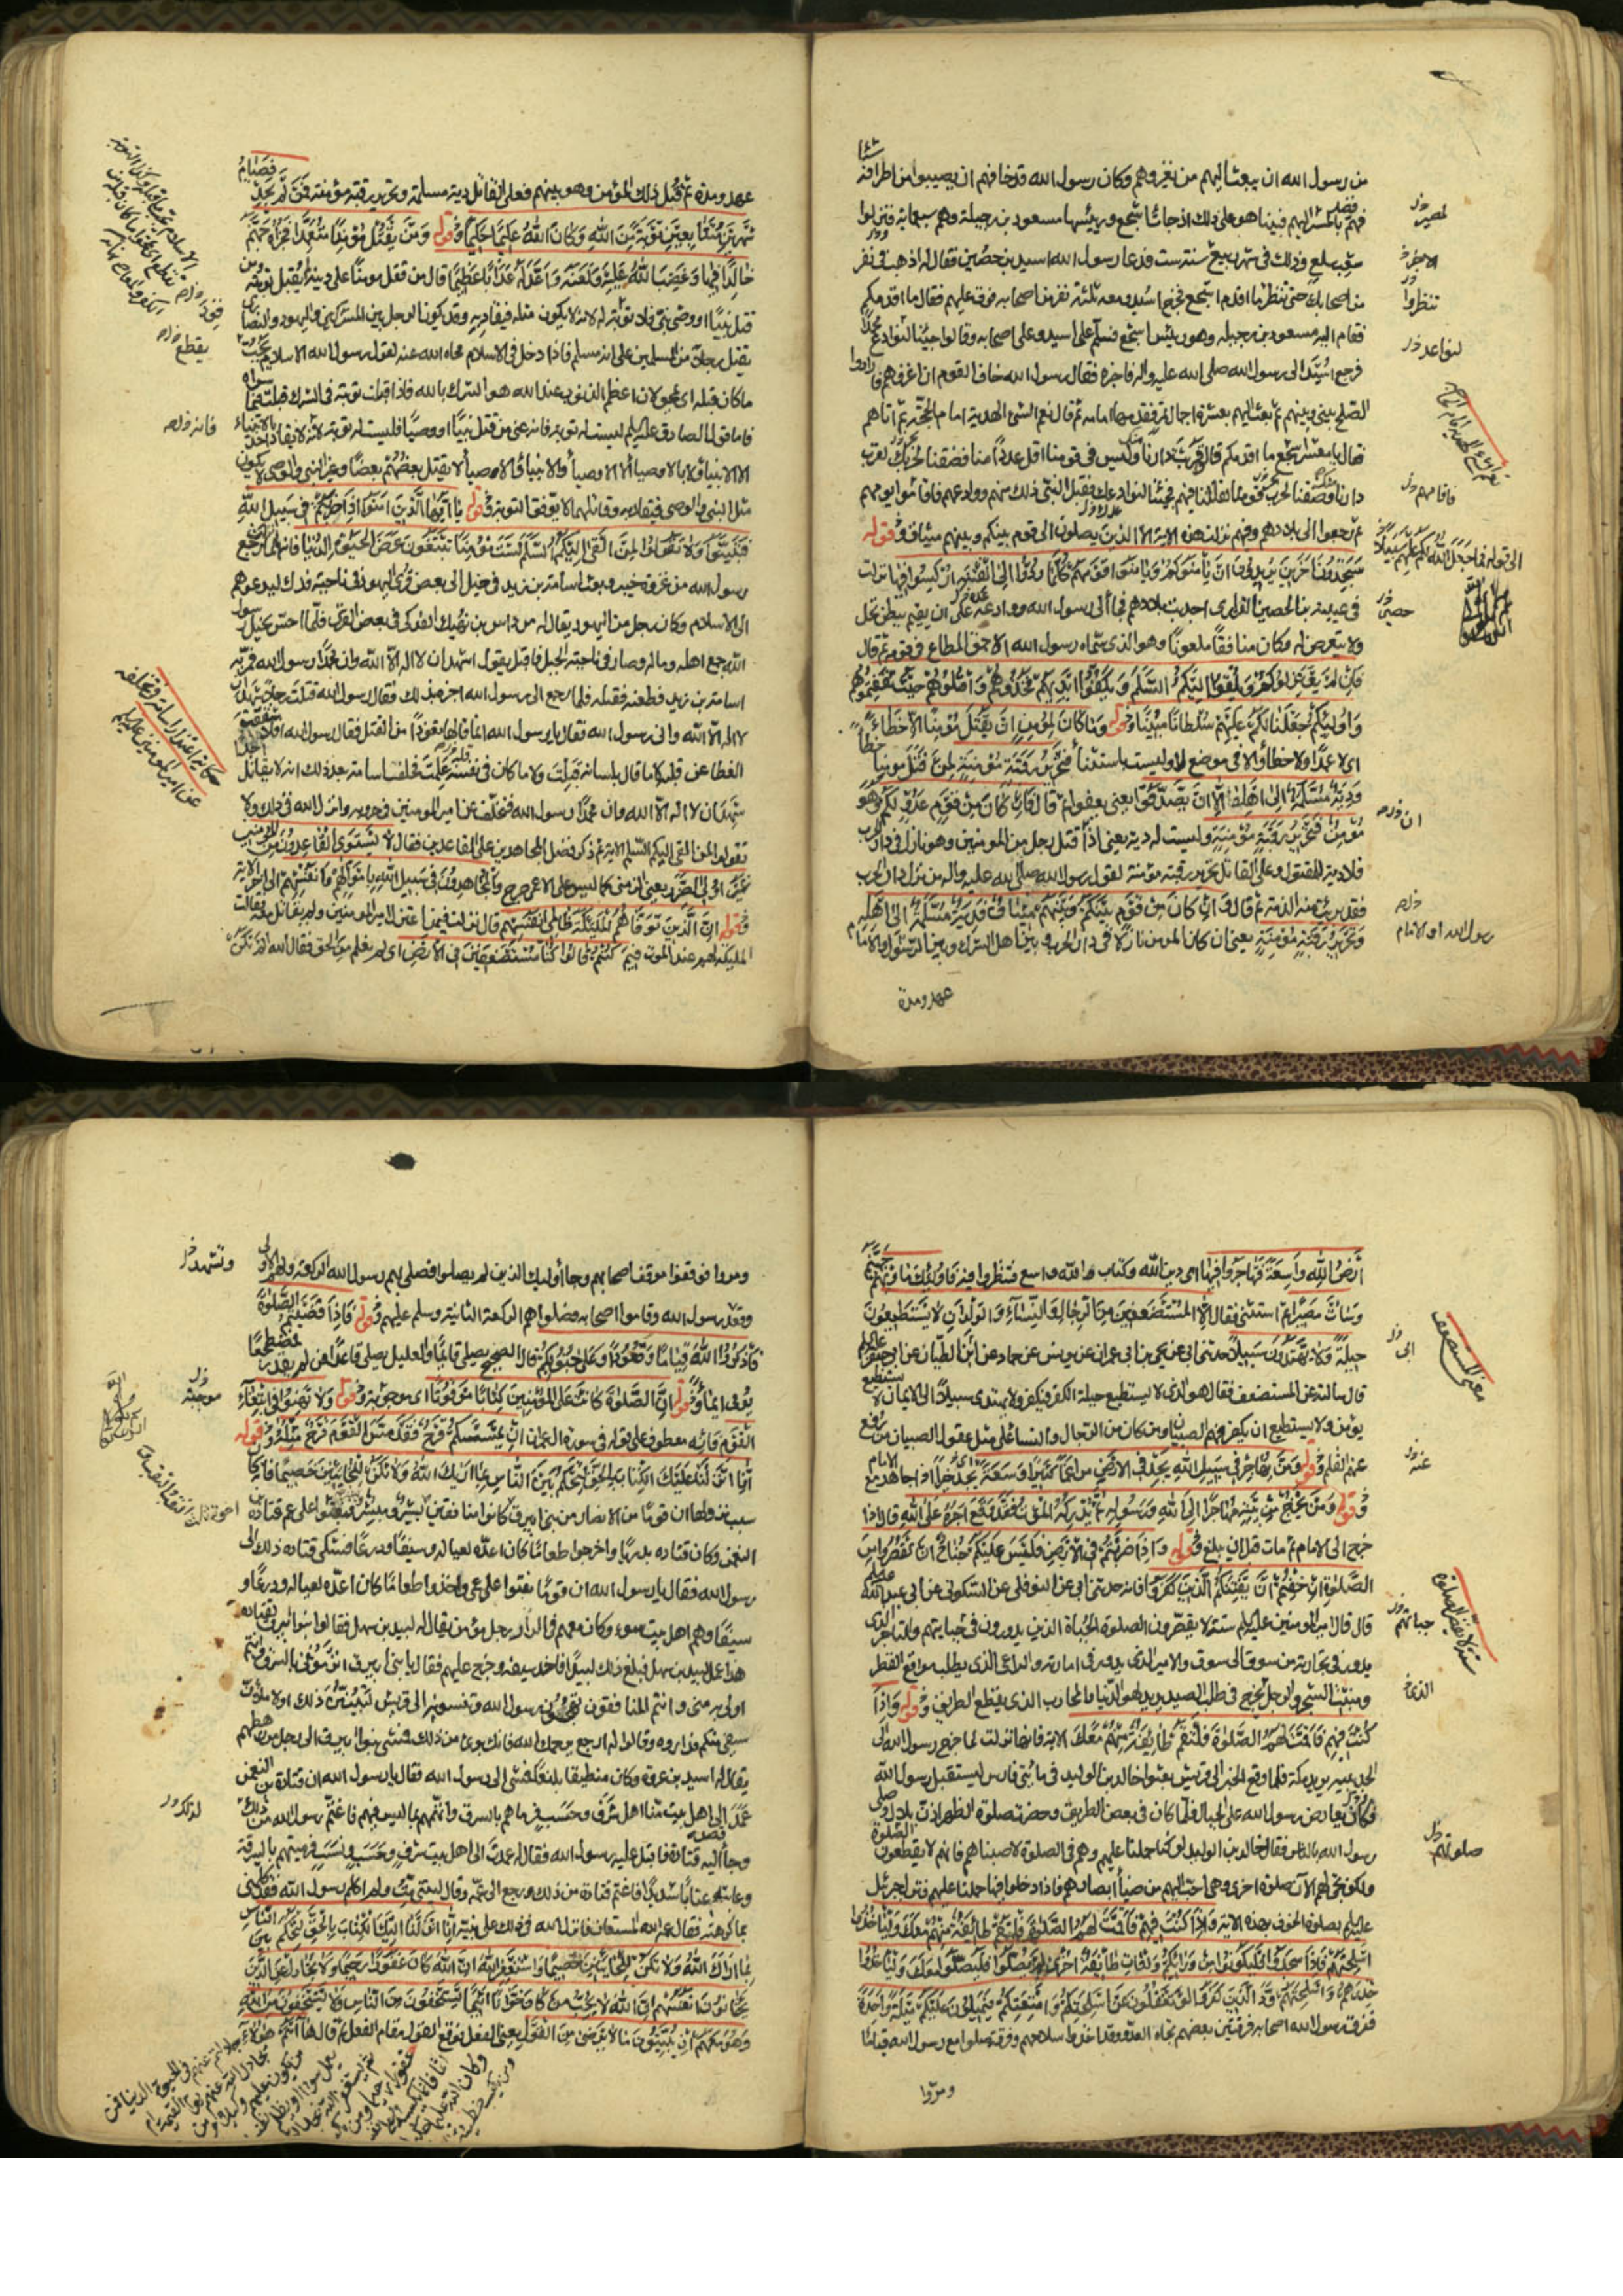 من رسول الله ان يبعث اليهم من يغزوهم وكان رسول الله قد خافهم ان يصيبوا من اطرافه
فهم بالمسير اليهم فبينما هو على ذلك اذ جائت اشجع ورئيسها مسعود بن رجيلة وهم سبعمائة فنزلوا
شعب سلع وذلك في شهر ربيع سنة ست فدعا رسول الله اسيد بن حصين فقال له اذهب في نفر
من اصحابك حتى تنظر ما اقدم اشجع فخرج اسيد ومعه ثلثة نفر من اصحابه فوقف عليهم فقال ما اقدمكم
فقام اليه مسعود بن رجيله وهو رئيس اشجع فسلم على اسيد وعلى اصحابه وقالوا جئنا لنوادع محمدا
فرجع اسيد الى رسول الله صلى الله عليه واله فاخبره فقال رسول الله خاف القوم ان اغزوهم فارادوا
الصلح بيني وبينهم ثم بعث اليهم بعشرة اجمال تمر فقدمها امامه ثم قال نعم الشئ الهدية امام الحاجة ثم اتاهم
فقال يا معشر اشجع ما اقدمكم قالوا قربت دارنا منك وليس في قومنا اقل عددا منا فضقنا لحربك لقرب
دارنا وضقنا لحرب قومنا لقلتنا فيهم فجئنا لنوادعك فقبل النبي ذلك منهم ووادعهم فاقاموا يومهم
ثم رجعوا الى بلادهم وفيهم نزلت هذه الاية الا الذين يصلون الى قوم بينكم وبينهم ميثاق وقوله
ستجدون اخرين يريدون ان يأمنوكم ويأمنوا قومهم كلما ردوا الى الفتنة اركسوا فيها نزلت
في عيينة بن الحصين الفزارى اجدبت بلادهم فجاء الى رسول الله ووادعه على ان يقيم ببطن نخل
ولا يتعرض له وكان منافقا ملعونا وهو الذى سماه رسول الله الاحمق المطاع في قومه ثم قال
فان لم يعتزلوكم ويلقوا اليكم السلم ويكفوا ايديهم فخذوهم واقتلوهم حيث ثقفتموهم
واولئكم جعلنا لكم عليهم سلطانا مبينا وقوله وما كان لمؤمن ان يقتل مؤمنا الا خطاء
اى لا عمدا ولا خطأ والا في موضع لا وليست باستثناء فتحرير رقبة مؤمنة
ودية مسلمة الى اهله الا ان يصدقوا يعنى يعفوا ثم قال فان كان من قوم عدو لكم وهو
مؤمن فتحرير رقبة مؤمنة وليست له دية يعنى اذا قتل رجل من المومنين وهو نازل في دار الحرب
فلا دية للمقتول وعلى القاتل تحرير رقبة مؤمنة لقول رسول الله صلى الله عليه واله من نزل دار الحرب
فقد برئت منه الذمة ثم قال وان كان من قوم بينكم وبينهم ميثاق فدية مسلمة الى اهله
وتحرير رقبة مؤمنة يعنى ان كان المومن نازلا في دار الحرب وبين اهل الشرك وبين الرسول او الامام
عهد ومدة
تنظروا
عهد ومدة ثم قتل ذلك المؤمن وهو بينهم فعلى القاتل دية مسلمة وتحرير رقبة مؤمنة فمن لم يجد فصيام
شهرين متتابعين توبة من الله وكان الله عليما حكيما وقوله ومن يقتل مؤمنا متعمدا فجزاؤه جهنم
خالدا فيها وغضب الله عليه ولعنه واعد له عذابا عظيما قال من قتل مومنا على دينه لم يقبل توبته ومن
قتل نبيا او وصى نبى فلا توبة له لانه لا يكون مثله فيقاد به وقد يكون الرجل بين المشركين واليهود والنصارى
يقتل رجلا من المسلمين على انه مسلم فاذا دخل في الاسلام محاه الله عنه لقول رسول الله الاسلام يجب
ما كان قبله اى يمحو لان اعظم الذنوب عند الله هو الشرك بالله فاذا قبلت توبته في الشرك قبلت فيما سواه
فاما قول الصادق عليه السلم ليست له توبة فانه عنى من قتل نبيا او وصيا فليست له توبة لانه لا يقاد احد بالانبياء
الا الانبياء ولا بالاوصياء الا الاوصياء والانبياء والاوصياء لا يقتل بعضهم بعضا وغير النبى والوصى لا يكون
مثل النبى والوصى فيقاد به وقاتلهما لا يوفق التوبة وقوله يا ايها الذين امنوا اذا ضربتم في سبيل الله
فتبينوا ولا تقولوا لمن القى اليكم السلم لست مؤمنا تبتغون عرض الحيوة الدنيا فانها نزلت لما رجع
رسول الله من غزوة خيبر وبعث اسامة بن زيد في خيل الى بعض قرى اليهود في ناحية فدك ليدعوهم
الى الاسلام وكان رجل من اليهود يقال له مرداس بن نهيك الفدكى في بعض القرى فلما احس بخيل رسول
الله جمع اهله وماله وصار في ناحية الجبل فاقبل يقول اشهد ان لا اله الا الله وان محمدا رسول الله فمر به
اسامة بن زيد فطعنه فقتله فلما رجع الى رسول الله اخبره بذلك فقال رسول الله قتلت رجلا شهد ان
لا اله الا الله وانى رسول الله فقال يا رسول الله انما قالها تعوذا من القتل فقال رسول الله افلا شققت
الغطاء عن قلبه لا ما قال بلسانه قبلت ولا ما كان في نفسه علمت فحلف اسامة بعد ذلك انه لا يقاتل احدا
شهد ان لا اله الا الله وان محمدا رسول الله فتخلف عن امير المومنين في حروبه وانزل الله في ذلك ولا
تقولوا لمن القى اليكم السلم الاية ثم ذكر فضل المجاهدين على القاعدين فقال لا يستوى القاعدون من المؤمنين
غير اولى الضرر يعنى الزمنى كما ليس على الاعمى حرج والمجاهدون في سبيل الله باموالهم وانفسهم الى اخر الاية
وقوله ان الذين توفاهم الملئكة ظالمى انفسهم قال نزلت فيمن اعتزل امير المومنين ولم يقاتل معه فقالت
الملئكة لهم عند الموت فيم كنتم قالوا كنا مستضعفين في الارض اى لم نعلم مع من الحق فقال الله الم تكن
ارض الله واسعة فتهاجروا فيها اى دين الله وكتاب الله واسع فتنظروا فيه فاولئك مأويهم جهنم
وسائت مصيرا ثم استثنى فقال الا المستضعفين من الرجال والنساء والولدان لا يستطيعون
حيلة ولا يهتدون سبيلا حدثنى ابى عن يحيى بن ابى عمران عن يونس عن حماد عن ابن الطيار عن ابى جعفر عليه السلم
قال سالته عن المستضعف فقال هو الذى لا يستطيع حيلة الكفر فيكفر ولا يهتدى سبيلا الى الايمان لا يستطيع
يؤمن ولا يستطيع ان يكفر فهم الصبيان ومن كان من الرجال والنساء على مثل عقول الصبيان من رفع
عنهم القلم وقوله ومن يهاجر في سبيل الله يجد في الارض مراغما كثيرا وسعة اى يجد خيرا اذا جاهد مع الامام
وقوله ومن يخرج من بيته مهاجرا الى الله ورسوله ثم يدركه الموت فقد وقع اجره على الله قال اذا
خرج الى الامام ثم مات قبل ان يبلغ وقوله واذا ضربتم في الارض فليس عليكم جناح ان تقصروا من
الصلوة ان خفتم ان يفتنكم الذين كفروا فانه حدثنى ابى عن النوفلى عن السكونى عن ابى عبد الله عليه السلم
قال قال امير المومنين عليه السلم ستة لا يقصرون الصلوة الجباة الذين يدورون في جبايتهم والتاجر الذى
يدور في تجارته من سوق الى سوق والامير الذى يدور في امارته والراعى الذى يطلب مواقع القطر
ومنبت الشجر والرجل يخرج في طلب الصيد يريد لهو الدنيا والمحارب الذى يقطع الطريق وقوله واذا
كنت فيهم فاقمت لهم الصلوة فلتقم طائفة منهم معك الاية فانها نزلت لما خرج رسول الله الى
الحديبية يريد مكة فلما وقع الخبر الى قريش بعثوا خالد بن الوليد في مائتى فارس ليستقبل رسول الله
فكان يعارض رسول الله على الجبال فلما كان في بعض الطريق وحضرت صلوة الظهر اذن بلال وصلى
رسول الله بالناس فقال خالد بن الوليد لو كنا حملنا عليهم وهم في الصلوة لاصبناهم فانهم لا يقطعون الصلوة
ولكن تجئ لهم الآن صلوة اخرى وهى احب اليهم من ضياء ابصارهم فاذا دخلوا فيها حملنا عليهم فنزل جبرئيل
عليه السلم بصلوة الخوف بهذه الاية واذا كنت فيهم فاقمت لهم الصلوة فلتقم طائفة منهم معك وليأخذوا
اسلحتهم فاذا سجدوا فليكونوا من ورائكم ولتأت طائفة اخرى لم يصلوا فليصلوا معك وليأخذوا
حذرهم واسلحتهم ود الذين كفروا لو تغفلون عن اسلحتكم وامتعتكم فيميلون عليكم ميلة واحدة
ففرق رسول الله اصحابه فرقتين بعضهم تجاه العدو وقد اخذوا سلاحهم وفرقة صلوا مع رسول الله قياما
ومروا
ومروا فوقفوا موقف اصحابهم وجاء اولئك الذين لم يصلوا فصلى بهم رسول الله الركعة ولهم الاولى
وقعد رسول الله وقاموا اصحابه وصلوا هم الركعة الثانية وسلم عليهم وقوله فاذا قضيتم الصلوة
فاذكروا الله قياما وقعودا وعلى جنوبكم قال الصحيح يصلى قائما والعليل يصلى قاعدا فمن لم يقدر مضطجعا
يومى ايماء وقوله ان الصلوة كانت على المؤمنين كتابا موقوتا اى موجوبة وقوله ولا تهنوا في ابتغاء
القوم فانه معطوف على قوله في سورة ال عمران ان يمسسكم قرح فقد مس القوم قرح مثله وقوله
انا انزلنا عليك الكتاب بالحق لتحكم بين الناس بما اريك الله ولا تكن للخائنين خصيما فانه كان
سبب نزولها ان قوما من الانصار من بنى ابيرق كانوا منافقين بشير ومبشر فنقبوا على عم قتادة بن
النعمن وكان قتاده بدريا واخرجوا طعاما كان اعده لعياله وسيفا ودرعا فشكى قتاده ذلك الى
رسول الله فقال يا رسول الله ان قوما نقبوا على عمى واخذوا طعاما كان اعده لعياله ودرعا و
سيفا وهم اهل بيت سوء وكان معهم في الدار رجل مؤمن يقال له لبيد بن سهل فقالوا بنو ابيرق لقتادة
هذا عمل لبيد بن سهل فبلغ ذلك لبيدا فاخذ سيفه وخرج عليهم فقال يا بنى ابيرق اترموننى بالسرق وانتم
اولى به منى وانتم المنافقون تهجون رسول الله وتنسبونه الى قريش لتبينن ذلك او لاملأن
سيفى منكم فداروه وقالوا له ارجع يرحمك الله فانك برئ من ذلك فمشى بنو ابيرق الى رجل من رهطهم
يقال له اسيد بن عروة وكان منطيقا بليغا فمشى الى رسول الله فقال يا رسول الله ان قتادة بن النعمن
عمد الى اهل بيت منا اهل شرف وحسب فرماهم بالسرق واتهمهم بما ليس فيهم فاغتم رسول الله من ذلك
وجاء اليه قتادة فاقبل عليه رسول الله فقال له عمدت الى اهل بيت شرف وحسب ونسب فرميتهم بالسرقة
وعاتبه عتابا شديدا فاغتم قتادة من ذلك ورجع الى عمه وقال ليتنى مت ولم اكلم رسول الله فقد كلمنى
بما كرهته فقال عمه الله المستعان فانزل الله في ذلك على نبيه انا انزلنا اليك الكتاب بالحق لتحكم بين الناس
بما اراك الله ولا تكن للخائنين خصيما واستغفر الله ان الله كان غفورا رحيما ولا تجادل عن الذين
يختانون انفسهم ان الله لا يحب من كان خوانا اثيما يستخفون من الناس ولا يستخفون من الله
وهو معهم اذ يبيتون ما لا يرضى من القول يعنى الفعل فوقع القول مقام الفعل ثم قال ها انتم هؤلاء